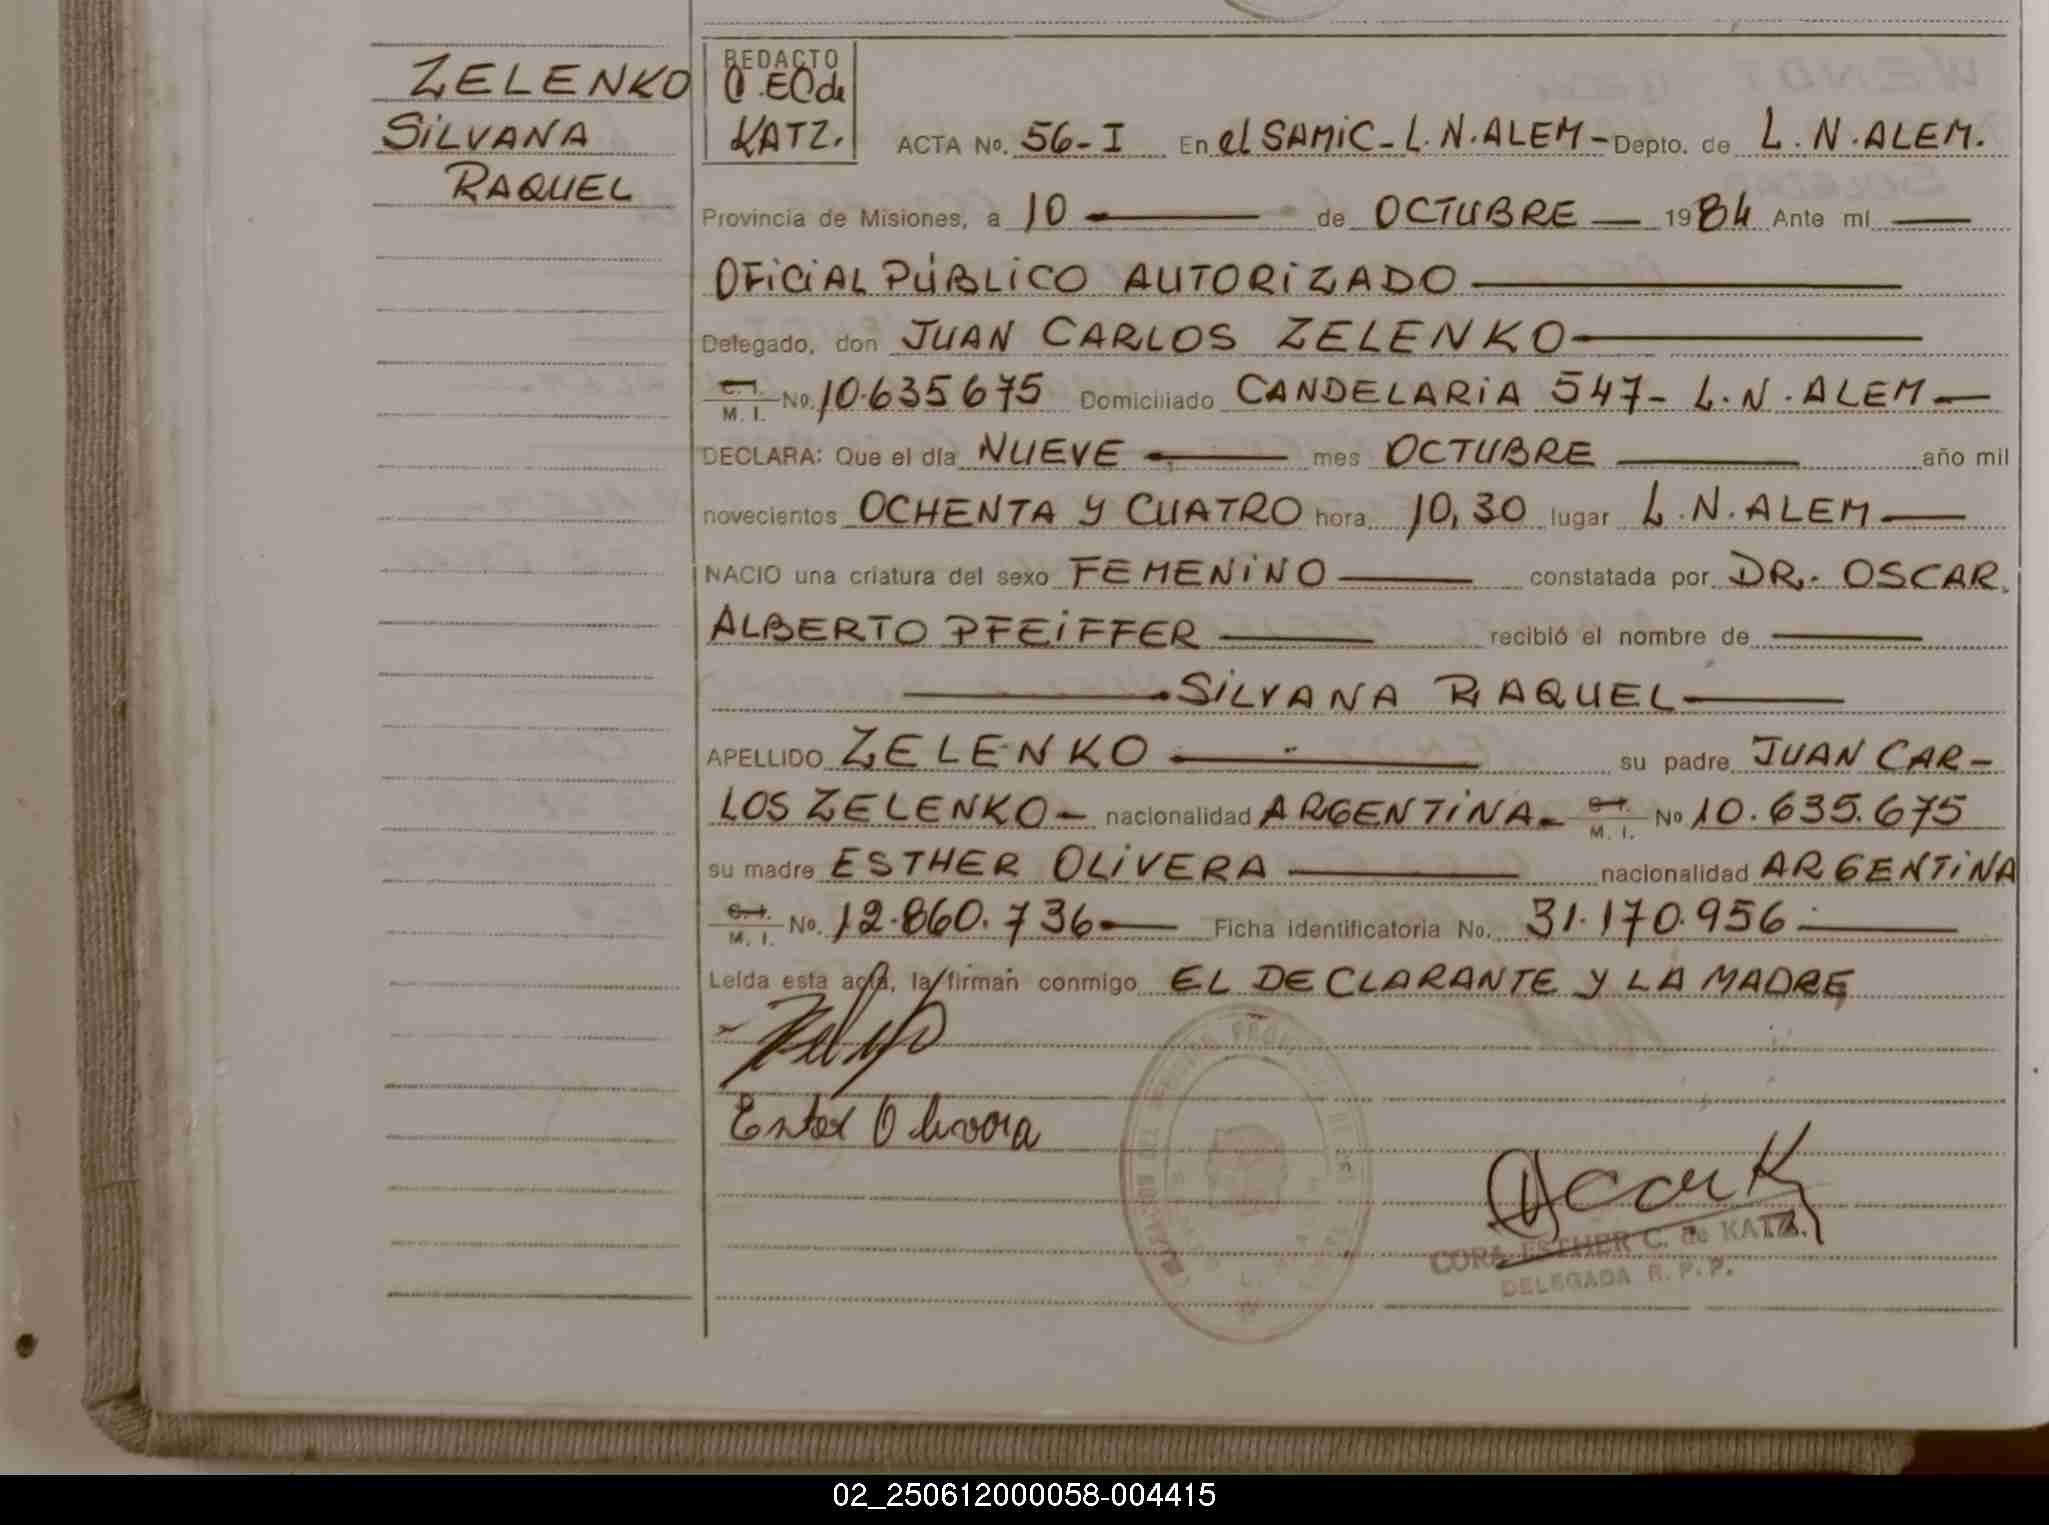 ZELENKO
SILVANA
RAQUEL
REDACTO
C.EC de
KATZ.
ACTA No. 56-I En el SAMIC-L.N.ALEM- Depto. de L.N.ALEM.
Provincia de Misiones, a 10 de OCTUBRE 1984 Ante mí
OFICIAL PÚBLICO AUTORIZADO
Delegado, don JUAN CARLOS ZELENKO
C.I. M.I. No. 10.635675 Domiciliado CANDELARIA 547- L.N.ALEM
DECLARA: Que el día NUEVE mes OCTUBRE año mil
novecientos OCHENTA Y CUATRO hora 10,30 lugar L.N.ALEM
NACIO una criatura del sexo FEMENINO constatada por DR. OSCAR
ALBERTO PFEIFFER recibió el nombre de
SILVANA RAQUEL
APELLIDO ZELENKO su padre JUAN CAR-
LOS ZELENKO- nacionalidad ARGENTINA C.I. M.I. No 10.635.675
su madre ESTHER OLIVERA nacionalidad ARGENTINA
C.I. M.I. No. 12.860.736 Ficha identificatoria No. 31.170.956
Leída esta acta, la firman conmigo EL DECLARANTE Y LA MADRE
Ester Olivera
CORA ESTHER C. de KATZ.
DELEGADA R.P.P.
02_250612000058-004415